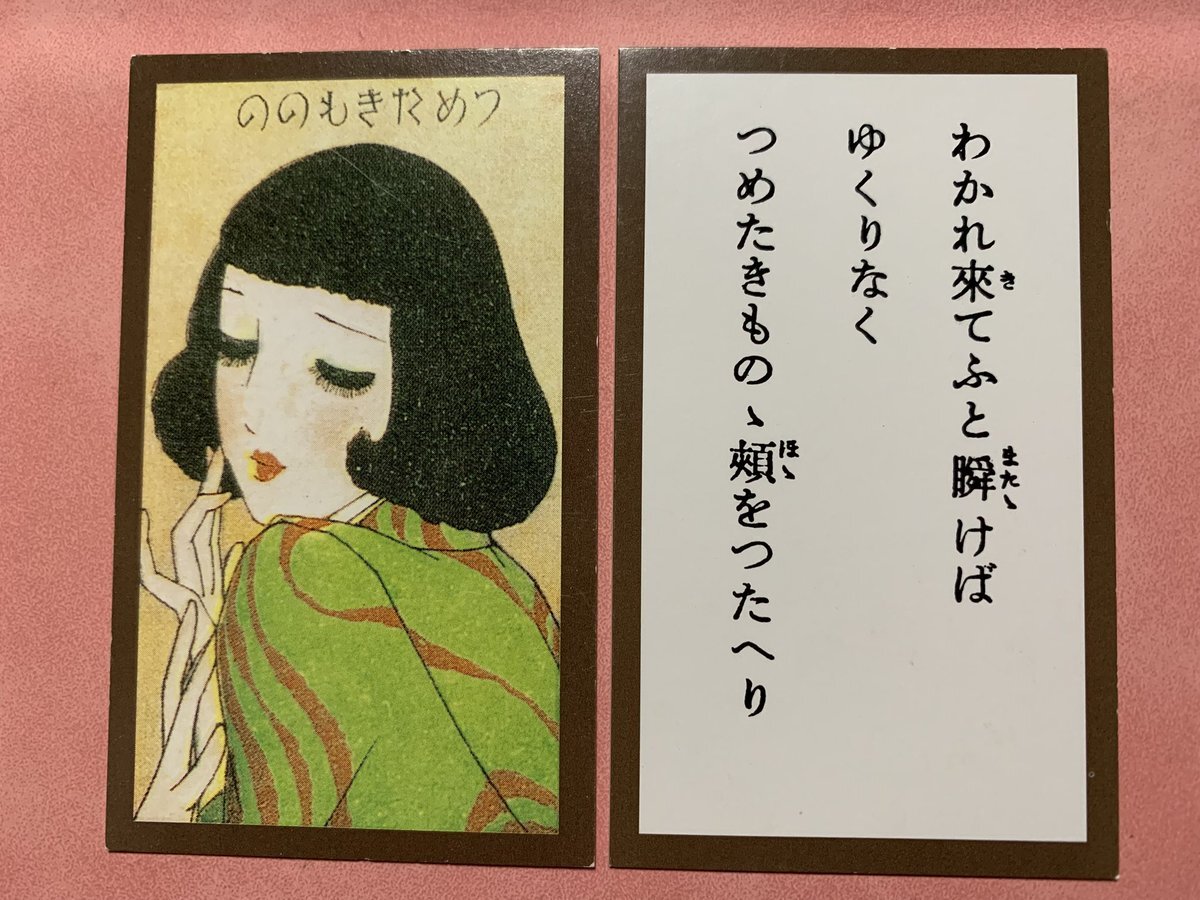 つめたきものの
わかれ來てふと瞬けば
き
またゝ
ゆくりなく
つめたきものゝ頰をつたへり
ほゝ